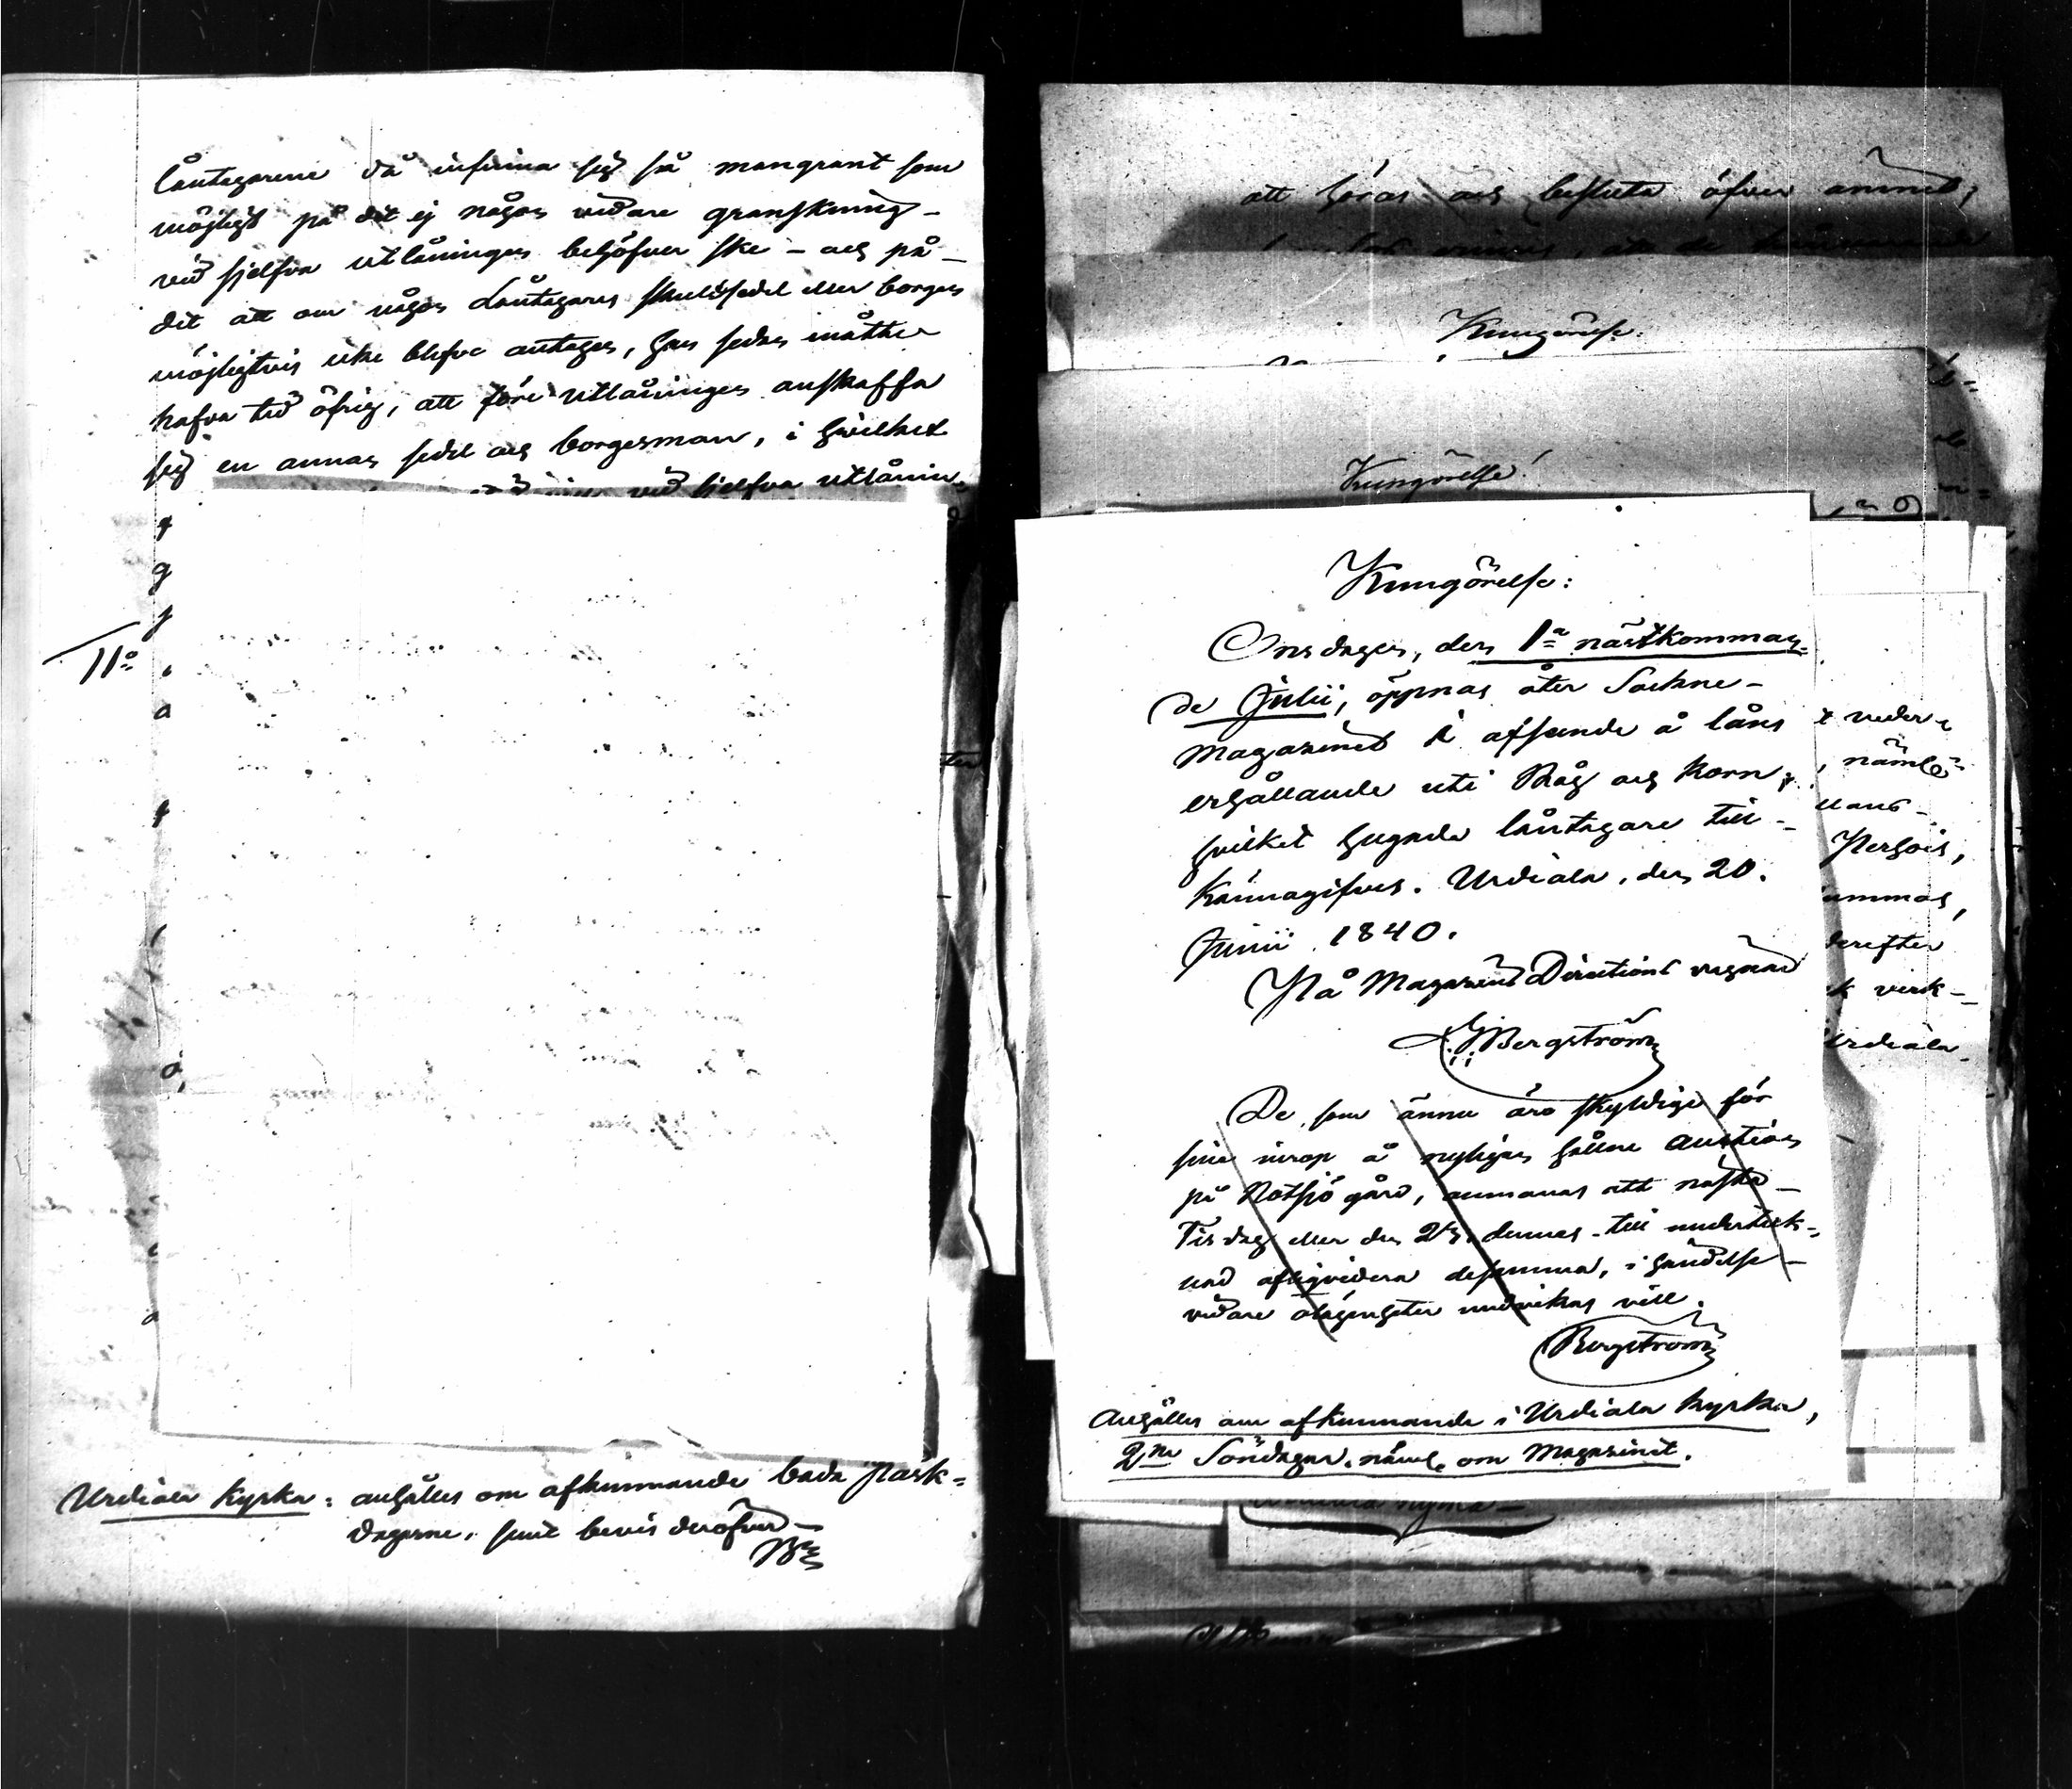 låntagarene då infinna sig så mangrant som
möjligt på det ej någon vidare granskning
vid sjelfva utlåningen behöfver ske - och på
det att om någon Låntagares skuldsedel eller borgen
möjligtvis icke blefve antagen, han sedan måtte
hafva tid öfrig, att före utlåningen anskaffa
sig en annan sedel och borgesman, i hvilket
vid sjelfva utlånin
11º
Urdiala Kyrka: anhålles om afkunnande båda Påsk=
dagarne, samt bevis deröfver
att höras och besluta öfver ämnet,
Kungörelse.
Kungörelse!
Kungörelse:
Onsdagen, den 1ª nästkomman=
de Julii, öppnas åter Sockne-
Magazinet i afseende å låns
erhållande uti Råg och Korn,
hvilket hugade låntagare till-
kännagifves. Urdiala, den 20.
Junii 1840.
På Magazins Directions vägnar
Bergström
De som ännu äro skyldige för
sina inrop å nyligen hållne Auction
på Notsjö gård, anmanas att nästa
Tisdag eller den 23. dennes till undertek-
nad afliqvidera desamma, i händelse
vidare olägenheter undvikas vill.
Bergström
Anhålles om afkunnande i Urdiala kyrka,
2ne Söndagar, näml. om Magasinet.
nämlº
Perhois,
derefter
verk-
Urdiala